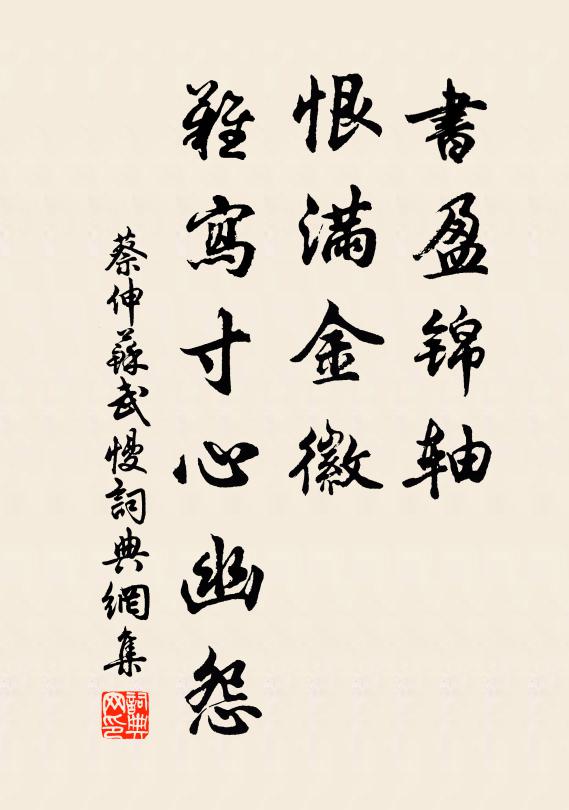 書盈锦轴
恨滿金徽
難寫寸心幽怨
蔡伸蘇武慢詞典網集
詞典網印